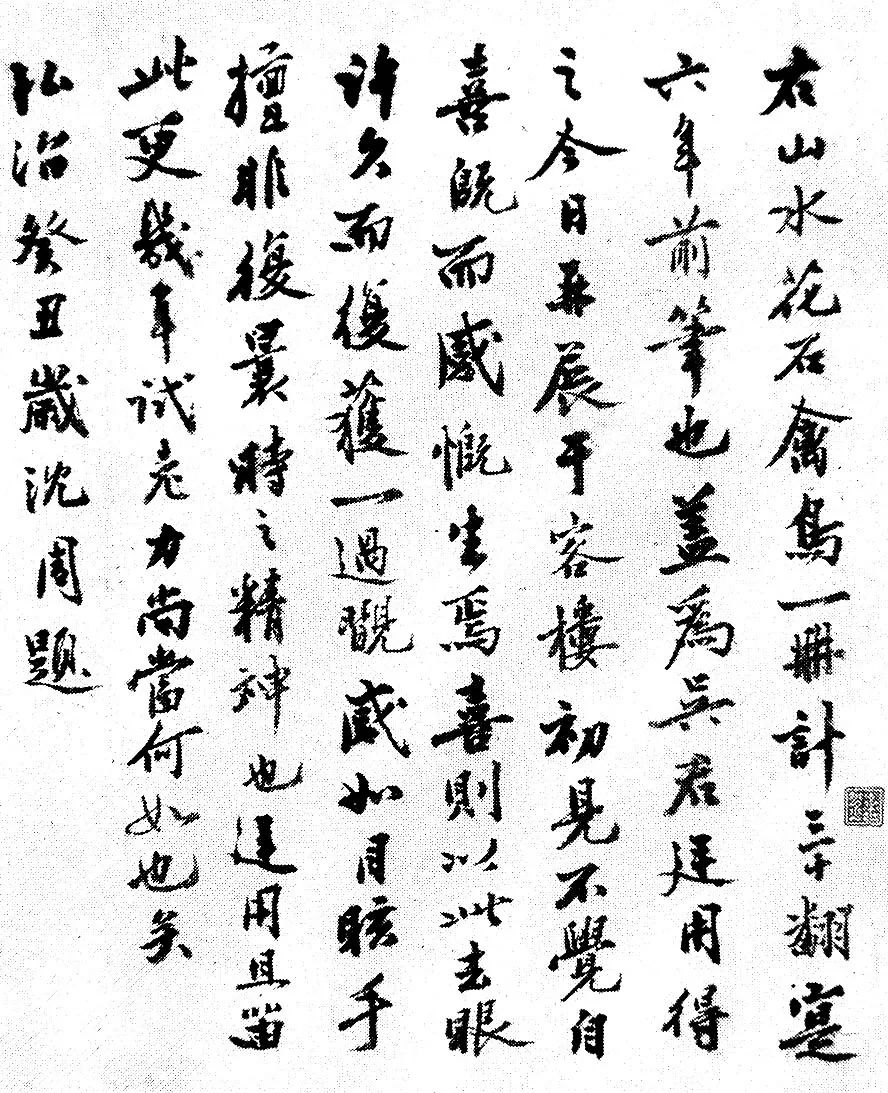 右山水花石禽鳥一冊計三十翻寔
六年前筆也蓋為吳君廷用得
之今日再展于容樓初見不覺自
喜既而感慨生焉喜則以此去眼
許久而復獲一過觀感如目眩手
擅非復曩時之精神也廷用且留
此更幾年試老力尚當何如也矣
弘治癸丑歲沈周題